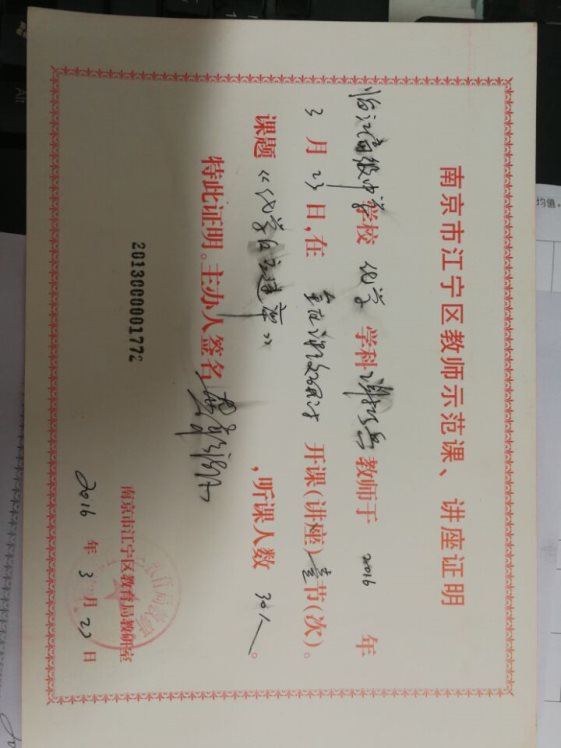 南京市江宁区教师示范课、讲座证明
临江高级中学学校 化学 学科 教师于 2016 年
3 月 23 日,在 开课(讲座)壹节(次)。
课题《化学 》,听课人数 30人。
特此证明。主办人签名
南京市江宁区教育局教研室
2013000001772
2016 年 3 月 23 日